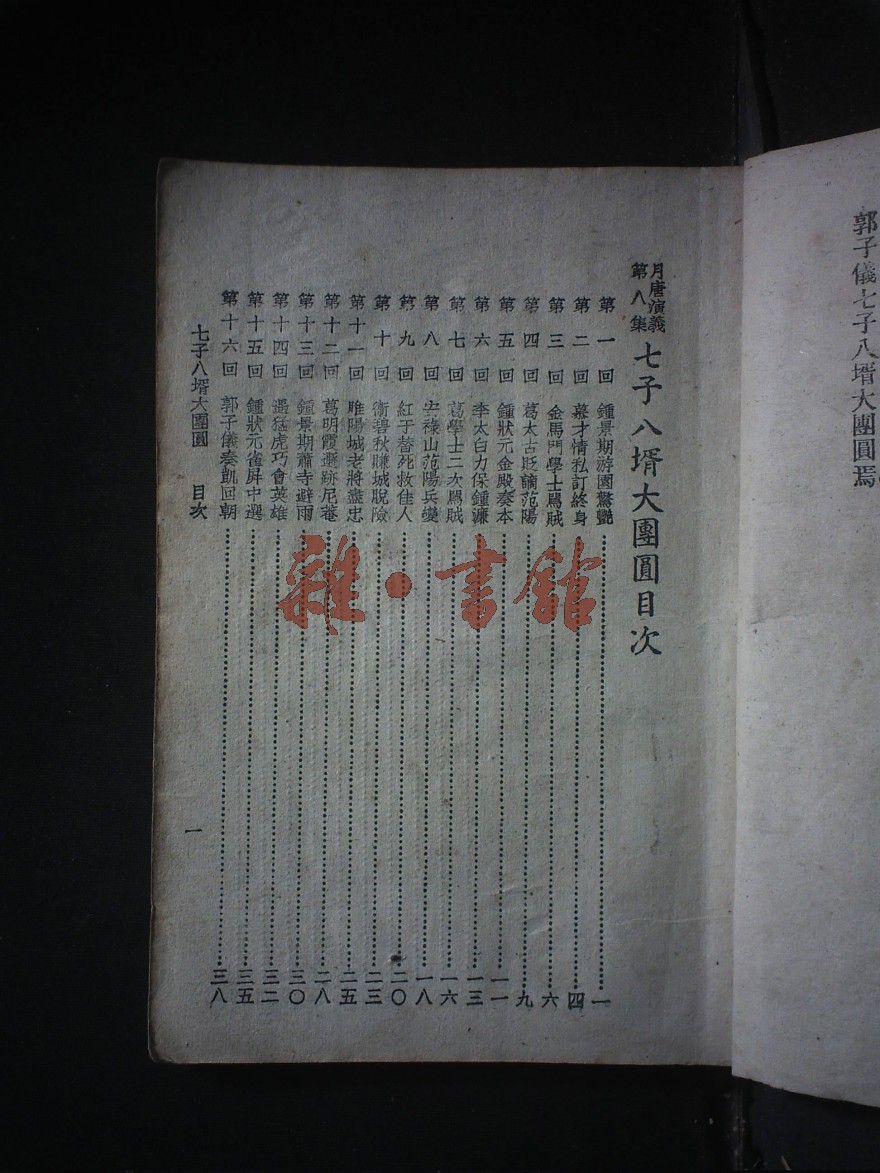 郭子儀七子八壻大團圓焉
月唐演義
第八集
七子八壻大團圓目次
第一回 鍾景期游園驚艷 一
第二回 慕才情私訂終身 四
第三回 金馬門學士罵賊 六
第四回 葛太古貶謫范陽 九
第五回 鍾狀元金殿奏本 一一
第六回 李太白力保鍾濂 一三
第七回 葛學士二次罵賊 一六
第八回 安祿山范陽兵變 一八
第九回 紅于替死救佳人 二〇
第十回 衛碧秋賺城脫險 二三
第十一回 睢陽城老將盡忠 二五
第十二回 葛明霞遯跡尼菴 二八
第十三回 鍾景期蕭寺避雨 三〇
第十四回 遇猛虎巧會英雄 三二
第十五回 鍾狀元雀屏中選 三五
第十六回 郭子儀奏凱回朝 三八
七子八壻大團圓 目次
一
雜·書館